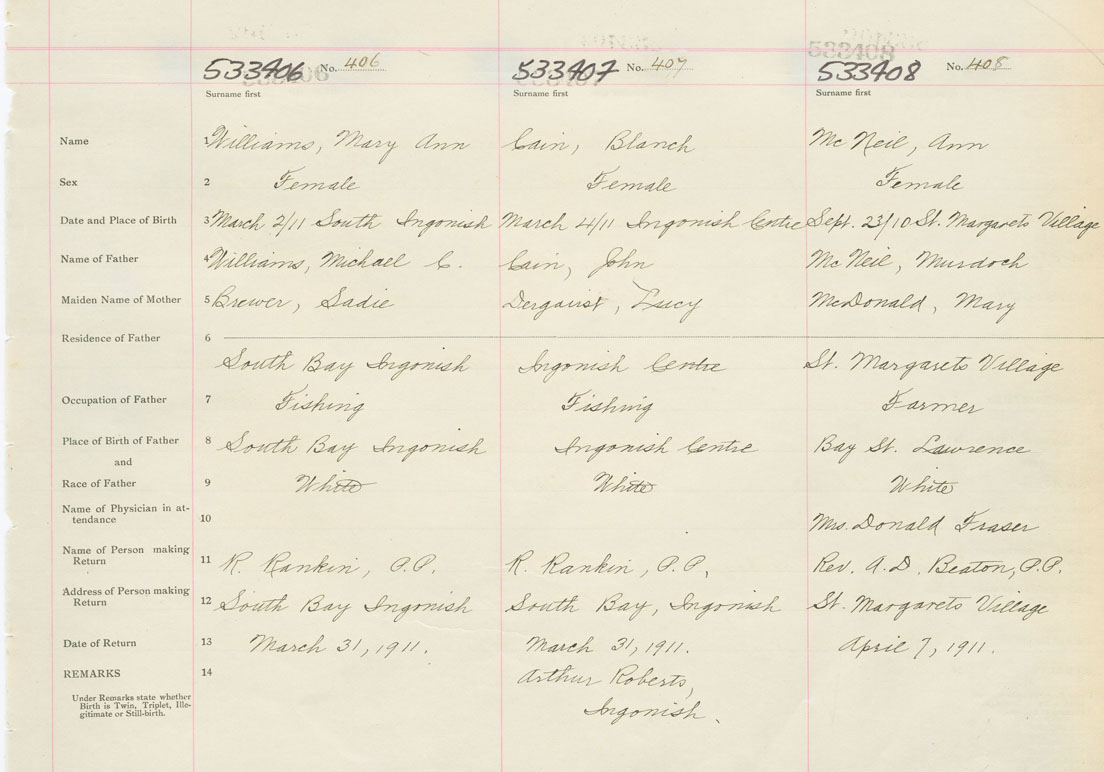 533406 No. 406 533407 No. 407 533408 533408 No. 408
Surname first Surname first Surname first
Name 1 Williams, Mary Ann Cain, Blanch Mc Neil, Ann
Sex 2 Female Female Female
Date and Place of Birth 3 March 2/11 South Ingonish March 4/11 Ingonish Centre Sept. 23/10 St. Margarets Village
Name of Father 4 Williams, Michael C. Cain, John Mc Neil, Murdoch
Maiden Name of Mother 5 Brewer, Sadie Lucy McDonald, Mary
Residence of Father 6
South Bay Ingonish Ingonish Centre St. Margarets Village
Occupation of Father 7 Fishing Fishing Farmer
Place of Birth of Father 8 South Bay Ingonish Ingonish Centre Bay St. Lawrence
and
Race of Father 9 White White White
Name of Physician in at-
tendance 10 Mrs. Donald Fraser
Name of Person making
Return 11 R. Rankin, P.P. R. Rankin, P.P. Rev. A.D. Beaton, P.P.
Address of Person making
Return 12 South Bay Ingonish South Bay, Ingonish St. Margarets Village
Date of Return 13 March 31, 1911. March 31, 1911. April 7, 1911.
REMARKS 14 Arthur Roberts,
Ingonish.
Under Remarks state whether
Birth is Twin, Triplet, Ille-
gitimate or Still-birth.